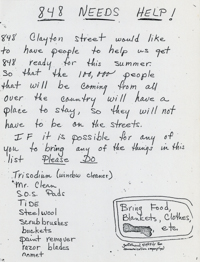 848 NEEDS HELP!
848 Clayton street would like
to have people to help us get
848 ready for this summer.
So that the 100,000 people
that will be coming from all
over the country will have a
place to stay, so they will not
have to be on the streets.
IF it is possible for any of
you to bring any of the things in this
list Please Do.
Trisodium (window cleaner)
Mr. Clean
S.O.S. Pads
TIDE
Steel wool
Scrub brushes
buckets
paint remover
razor blades
comet
Bring Food,
Blankets, Clothes,
etc.